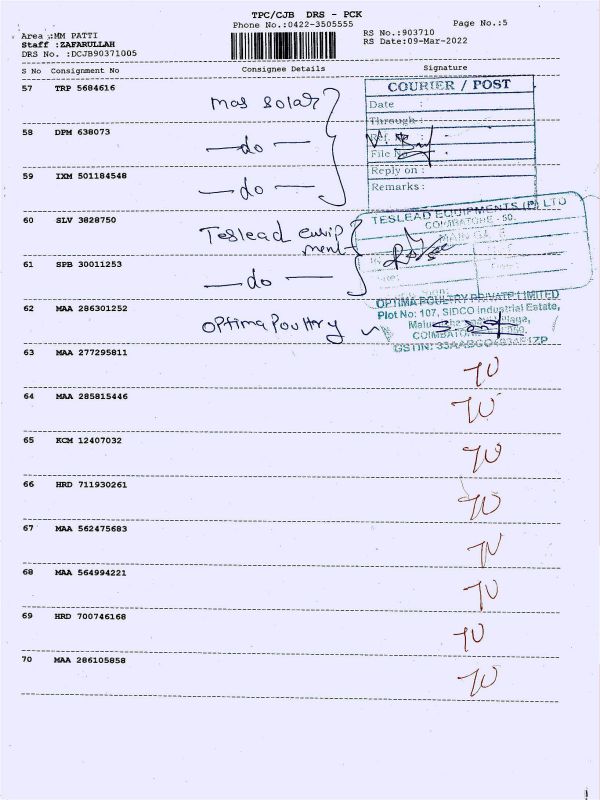 TPC/CJB DRS - PCK
Phone No.:0422-3505555
Page No.:5
Area :MM PATTI
Staff :ZAFARULLAH
DRS No. :DCJB90371005
RS No.:903710
RS Date:09-Mar-2022
S No Consignment No Consignee Details Signature
57 TRP 5684616
mas solar
COURIER / POST
Date :
Through :
58 DPM 638073
do
Ref. No :
File No
59 IXM 501184548
do
Reply on :
Remarks :
60 SLV 3828750
Teslead equip
ment
TESLEAD EQUIPMENTS (P) LTD
COIMBATORE - 50.
61 SPB 30011253
do
62 MAA 286301252
Optima Poultry
OPTIMA POULTRY PRIVATE LIMITED
Plot No: 107, SIDCO Industrial Estate,
COIMBATORE
GSTIN:
63 MAA 277295811
64 MAA 285815446
65 KCM 12407032
66 HRD 711930261
67 MAA 562475683
68 MAA 564994221
69 HRD 700746168
70 MAA 286105858